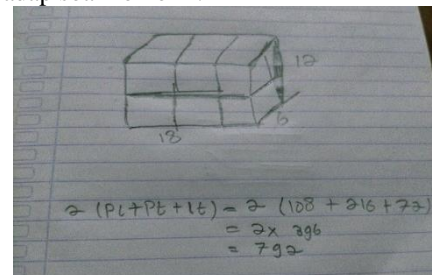 12
6
18
2 (Pl + Pt + lt) = 2 (108 + 216 + 72)
= 2 x 396
= 792